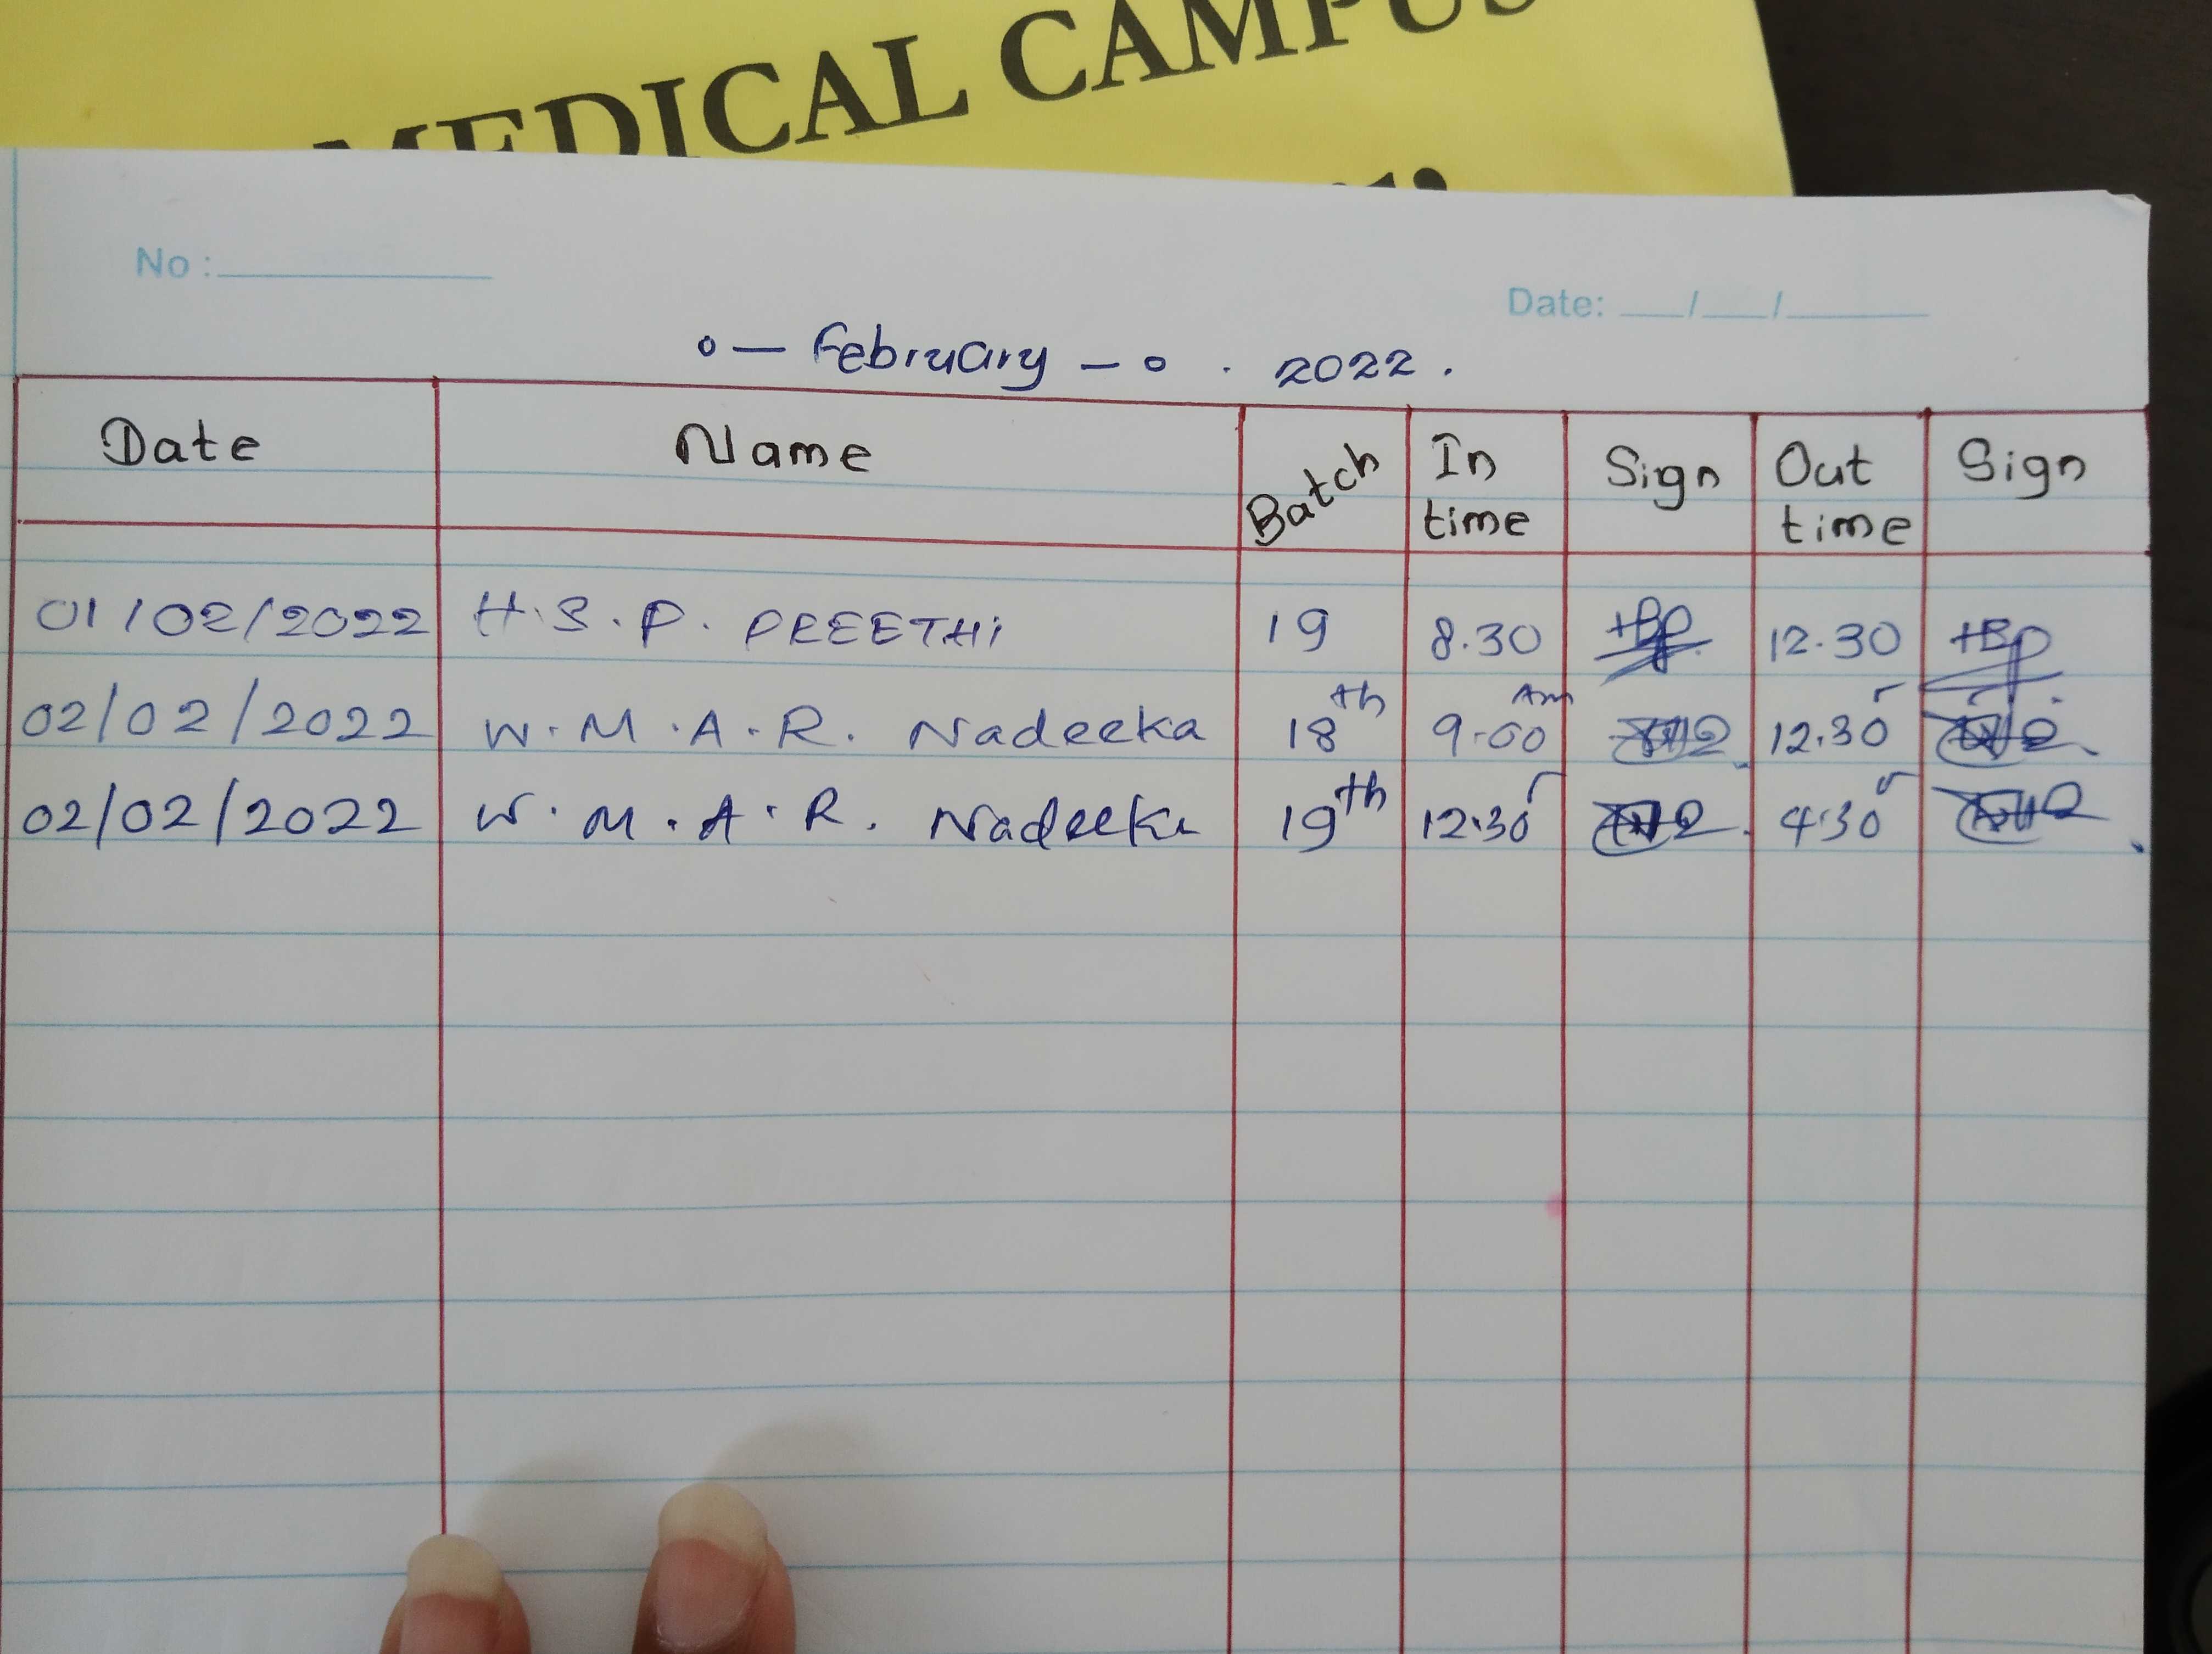 MEDICAL CAMPUS
No :
Date: / /
February - 2022.
Date Name Batch In time Sign Out time Sign
01/02/2022 H.S.P. PREETHi 19 8.30 12.30
02/02/2022 W.M.A.R. Nadeeka 18th 9.00 Am 12.30
02/02/2022 W.M.A.R. Nadeeka 19th 12.30 4.30